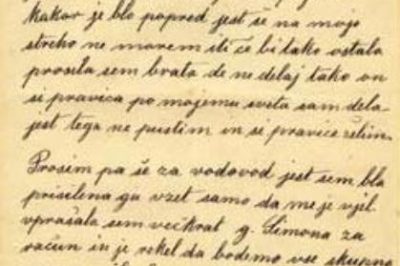 kakor je blo popred jest še na mojo
streho ne morem iti če bi tako ostalo
prosila sem brata de ne delaj tako on
si pravica po mojemu sveta sam dela
jest tega ne pustim in si pravice želim.
Prosim pa še za vodovod jest sem bla
prisilena ga vzet samo da me je vjel
vprašala sem večkrat g. Simona za
račun in je rekel da bodemo vse skupno